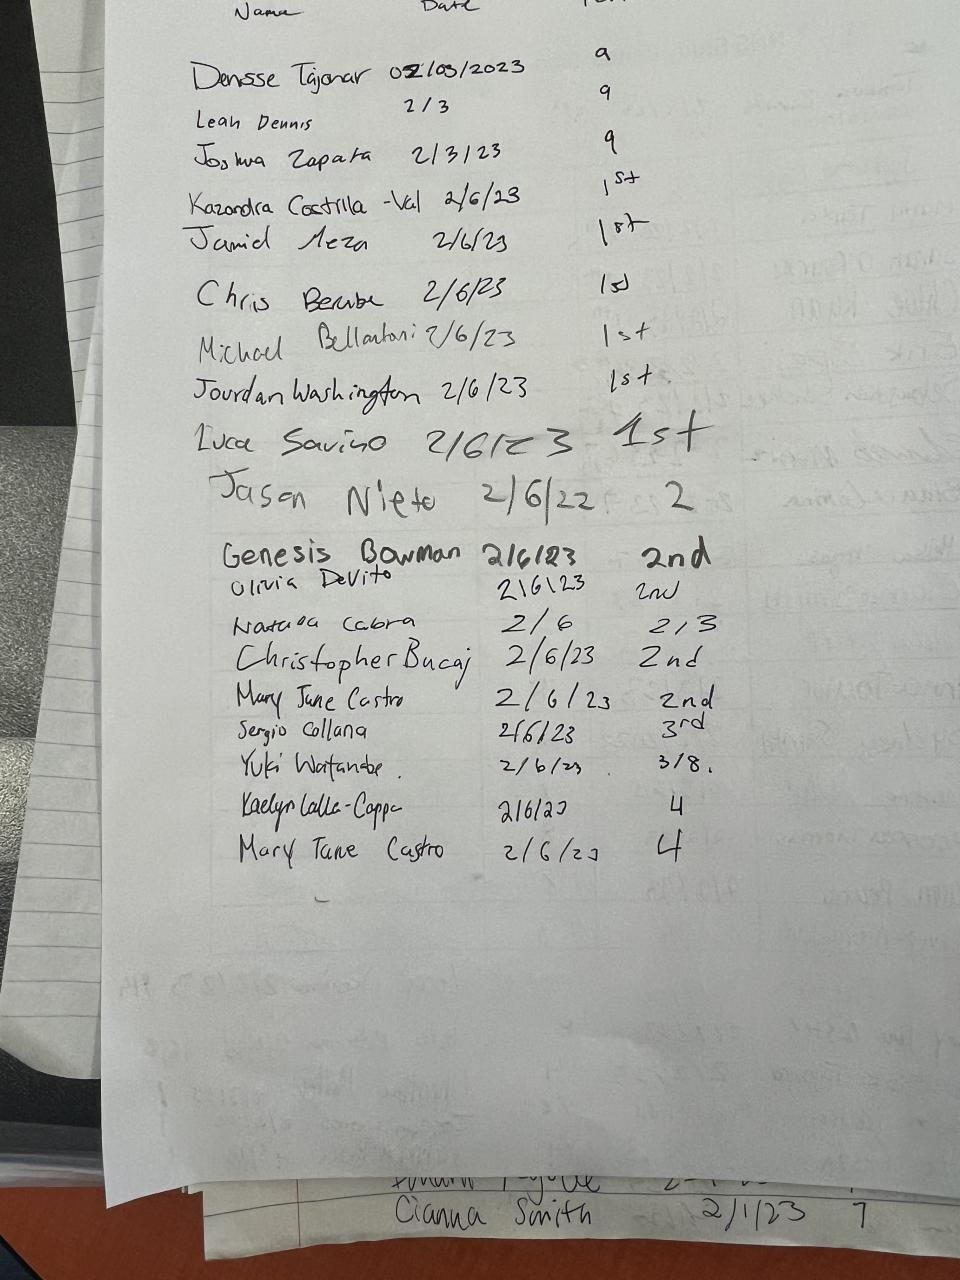 Name Date
Denisse Tajonar 02/03/2023 9
Leah Dennis 2/3 9
Joshua Zapata 2/3/23 9
Kazandra Costilla-Val 2/6/23 1st
Jamid Meza 2/6/23 1st
Chris Berube 2/6/23 1st
Michael Bellantoni 2/6/23 1st
Jourdan Washington 2/6/23 1st.
Luca Savino 2/6/23 1st
Jason Nieto 2/6/22 2
Genesis Bowman 2/6/23 2nd
Olivia DeVito 2/6/23 2nd
Cabra 2/6 2/3
Christopher Bucaj 2/6/23 2nd
Mary Jane Castro 2/6/23 2nd
Sergio Collana 2/6/23 3rd
Yuki Watanabe. 2/6/23. 3/8.
Kaelyn Lalla-Coppa 2/6/23 4
Mary Jane Castro 2/6/23 4
Cianna Smith 2/1/23 7